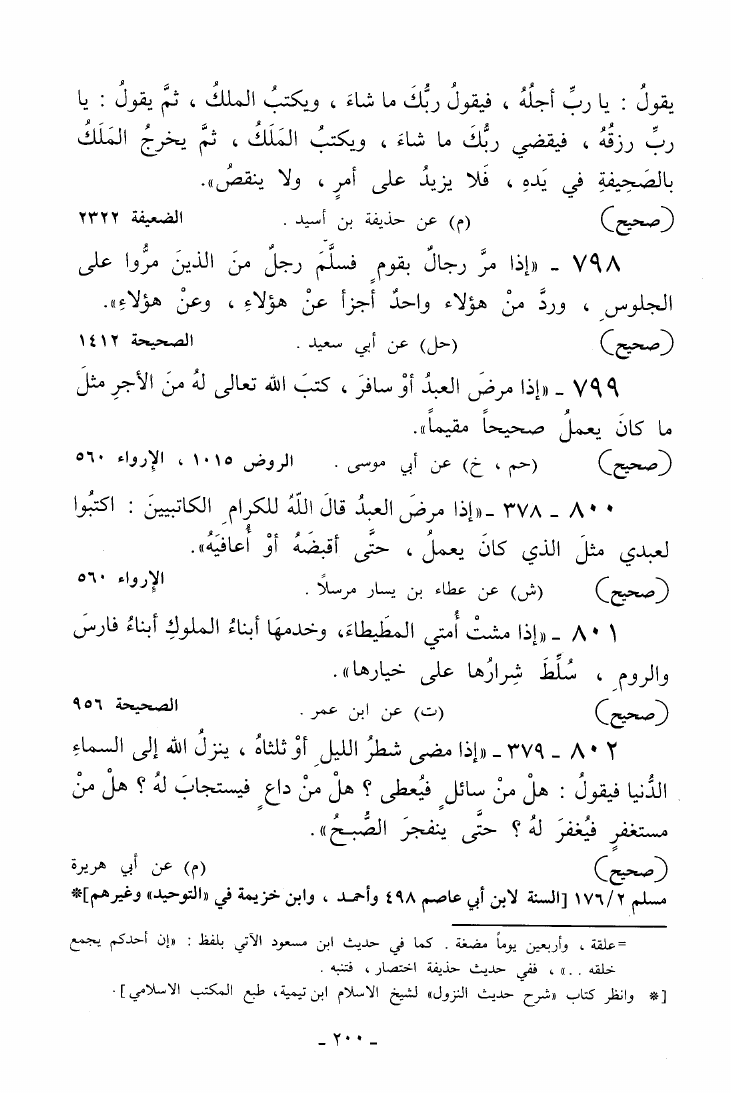 يقولُ : يا ربِّ أجلُهُ ، فيقولُ ربُّكَ ما شاءَ ، ويكتبُ الملكُ ، ثمَّ يقولُ : يا
ربِّ رزقُهُ ، فيقضي ربُّكَ ما شاءَ ، ويكتبُ المَلَكُ ، ثمَّ يخرجُ المَلَكُ
بالصَحِيفةِ في يَدهِ ، فَلا يزيدُ على أمرٍ ، ولا ينقصُ».
(صحيح) (م) عن حذيفة بن أسيد . الضعيفة ٢٣٢٢
٧٩٨ ـ «إذا مرَّ رجالٌ بقومٍ فسلَّمَ رجلٌ منَ الذينَ مرُّوا على
الجلوسِ ، وردَّ منْ هؤلاء واحدٌ أجزأ عنْ هؤلاءِ ، وعنْ هؤلاءِ».
(صحيح) (حل) عن أبي سعيد . الصحيحة ١٤١٢
٧٩٩ ـ «إذا مرضَ العبدُ أوْ سافرَ ، كتبَ الله تعالى لهُ منَ الأجرِ مثلَ
ما كانَ يعملُ صحيحاً مقيماً».
(صحيح) (حم ، خ) عن أبي موسى . الروض ١٠١٥ ، الإرواء ٥٦٠
٨٠٠ ـ ٣٧٨ ـ «إذا مرضَ العبدُ قالَ اللّهُ للكرامِ الكاتبيينَ : اكتبُوا
لعبدي مثلَ الذي كانَ يعملُ ، حتَّى أقبضَهُ أوْ أُعافيَهُ».
(صحيح) (ش) عن عطاء بن يسار مرسلاً . الإرواء ٥٦٠
٨٠١ ـ «إذا مشتْ أُمتي المطَيطاءَ، وخدمهَا أبناءُ الملوكِ أبناءُ فارسَ
والرومِ ، سُلِّطَ شِرارُها على خيارها».
(صحيح) (ت) عن ابن عمر . الصحيحة ٩٥٦
٨٠٢ ـ ٣٧٩ ـ «إذا مضى شطرُ الليلِ أوْ ثلثاهُ ، ينزلُ الله إلى السماءِ
الدُّنيا فيقولُ : هلْ منْ سائلٍ فيُعطى ؟ هلْ منْ داعٍ فيستجابَ لهُ ؟ هلْ منْ
مستغفرٍ فيُغفرَ لهُ ؟ حتَّى ينفجرَ الصُّبحُ».
(صحيح) (م) عن أبي هريرة
مسلم ١٧٦/٢ [السنة لابن أبي عاصم ٤٩٨ وأحمد ، وابن خزيمة في «التوحيد» وغيرهم]*
=علقة ، وأربعين يوماً مضغة . كما في حديث ابن مسعود الآتي بلفظ : «إن أحدكم يجمع
خلقه ..» ، ففي حديث حذيفة اختصار ، فتنبه .
[* وانظر كتاب «شرح حديث النزول» لشيخ الاسلام ابن تيمية، طبع المكتب الاسلامي].
ـ ٢٠٠ ـ